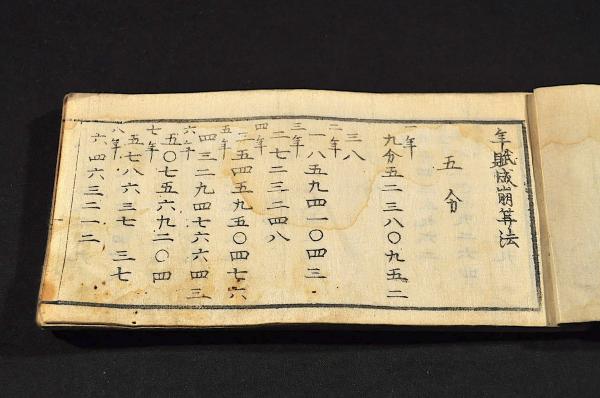 年賦成崩算法
五分
一年
九分五二三八〇九五二
三八
二年
一八五九四一〇四三
三年
二七二三二四八
四年
三五四五九五〇四七六
五年
四三二九四七六六四三
六年
五〇七五六九二〇四
七年
五七八六三七三七
八年
六四六三二一二